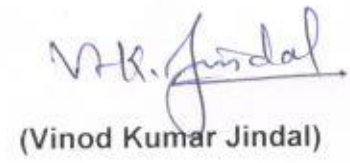 V.K. Jindal
(Vinod Kumar Jindal)